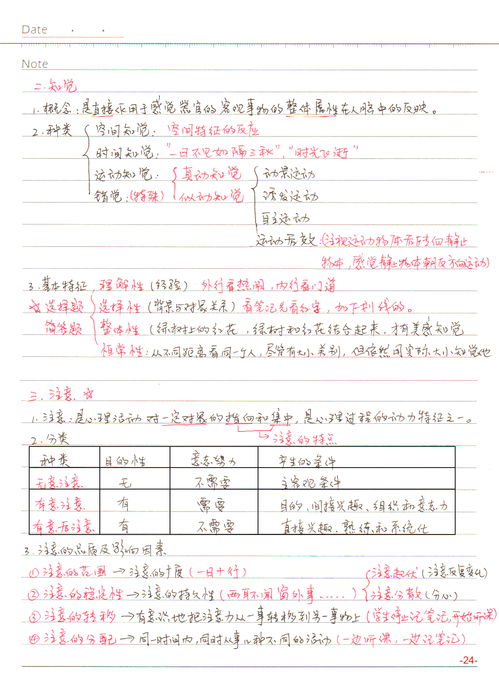 Date · ·
Note
二.知觉
1.概念:是直接作用于感觉器官的客观事物的整体属性在人脑中的反映。
2.种类
空间知觉:空间特征的反应
时间知觉:"一日不见如隔三秋","时光飞逝"
运动知觉:真动知觉 动景运动
错觉:(特殊) 似动知觉 诱发运动
自主运动
运动后效:(注视运动物体后转向静止
物体,感觉静止物体朝反方向运动)
3.基本特征 理解性(经验) 外行看热闹,内行看门道
☆选择题 选择性(背景与对象关系)看笔记先看红字,加下划线的。
简答题 整体性(绿树上的红花,绿树和红花结合起来,才有美感知觉
恒常性:从不同距离看同一个人,尽管有大小差别,但依然用实际大小知觉他
三.注意 ☆
1.注意:是心理活动对一定对象的指向和集中,是心理过程的动力特征之一。
2.分类 →注意的特点
种类 目的性 意志努力 产生的条件
无意注意 无 不需要 主客观条件
有意注意 有 需要 目的、间接兴趣、组织和意志力
有意后注意 有 不需要 直接兴趣、熟练和系统化
3.注意的品质及影响因素
①注意的范围→注意的广度(一目十行) 注意起伏(注意反复变化)
②注意的稳定性→注意的持久性(两耳不闻窗外事……) 注意分散(分心)
③注意的转移→有意识地把注意力从一事转移到另一事物上(学生停止记笔记,开始听课)
④注意的分配→同一时间内,同时从事几种不同的活动(一边听课,一边记笔记)
-24-